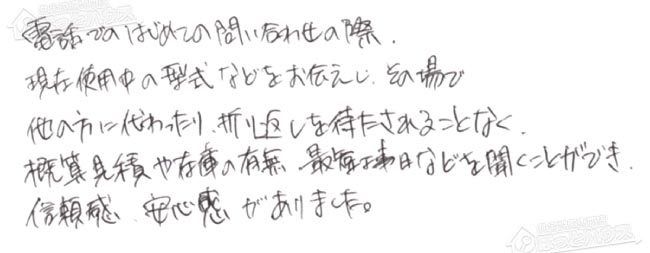 電話でのはじめての問い合わせの際、
現在使用中の型式などをお伝えし、その場で
他の方に代わったり、折り返しを待たされることなく、
概算見積や在庫の有無、最短工事日などを聞くことができ、
信頼感、安心感がありました。